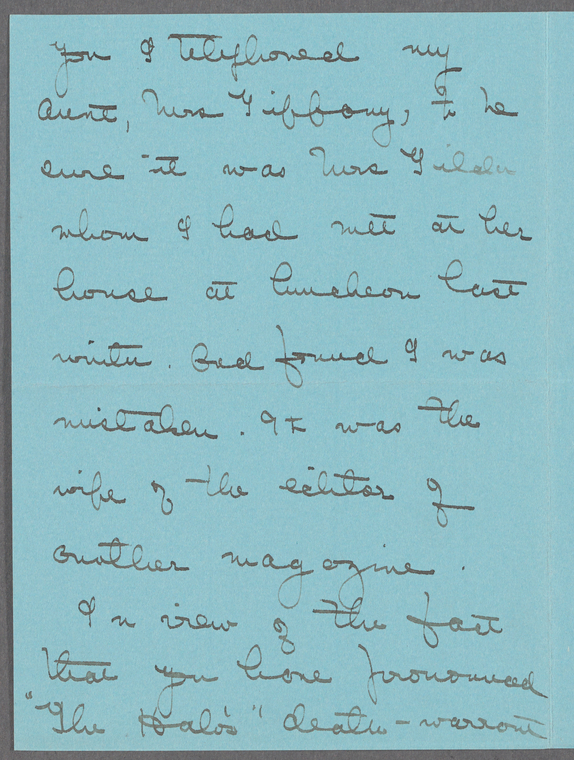 you I telephoned my
aunt, Mrs Tiffany, to be
sure it was Mrs Gilder
whom I had met at her
house at luncheon last
winter. And found I was
mistaken. It was the
wife of the editor of
another magazine.
In view of the fact
that you have pronounced
"The Halo's" death-warrant